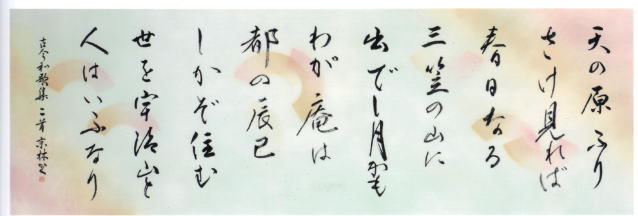 天の原ふり
さけ見れば
春日なる
三笠の山に
出でし月かも
わが庵は
都の辰巳
しかぞ住む
世を宇治山と
人はいふなり
古今和歌集 二首